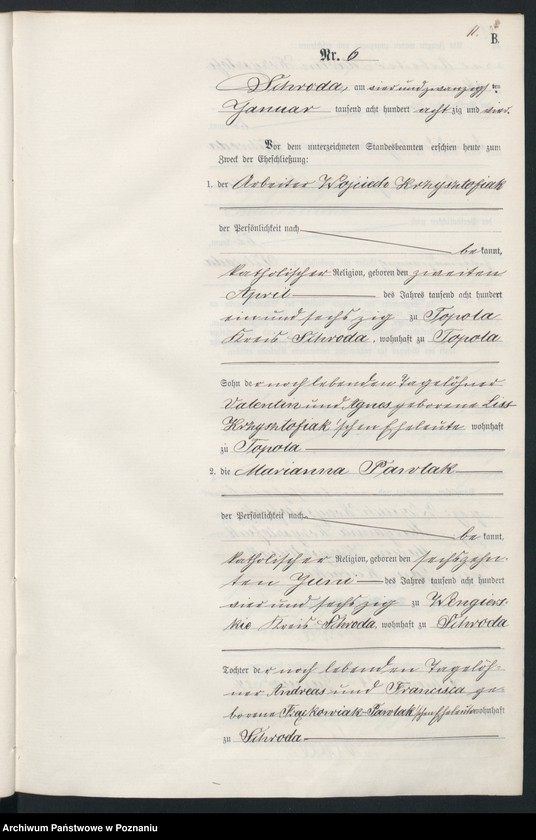 11.
B
Nr. 6
Schroda, am vier und zwanzigsten
Januar tausend acht hundert acht zig und vier.
Vor dem unterzeichneten Standesbeamten erschien heute zum
Zweck der Eheschließung:
1. der Arbeiter Wojciech Krzysztofiak
der Persönlichkeit nach
be kannt,
katholischer Religion, geboren den zweiten
April des Jahres tausend acht hundert
ein und sechs zig zu Topola
Kreis Schroda, wohnhaft zu Topola
Sohn der noch lebenden Tagelöhner
Valentin und Agnes geborene Liss-
Krzysztofiak'schen Eheleute wohnhaft
zu Topola
2. die Marianna Pawlak
der Persönlichkeit nach
be kannt,
katholischer Religion, geboren den sechszehn-
ten Juni des Jahres tausend acht hundert
vier und sechs zig zu Wengiers-
kie Kreis Schroda, wohnhaft zu Schroda
Tochter der noch lebenden Tagelöh-
ner Andreas und Francisca ge-
borene Frąckowiak-Pawlak'schen Eheleute wohnhaft
zu Schroda
Archiwum Państwowe w Poznaniu